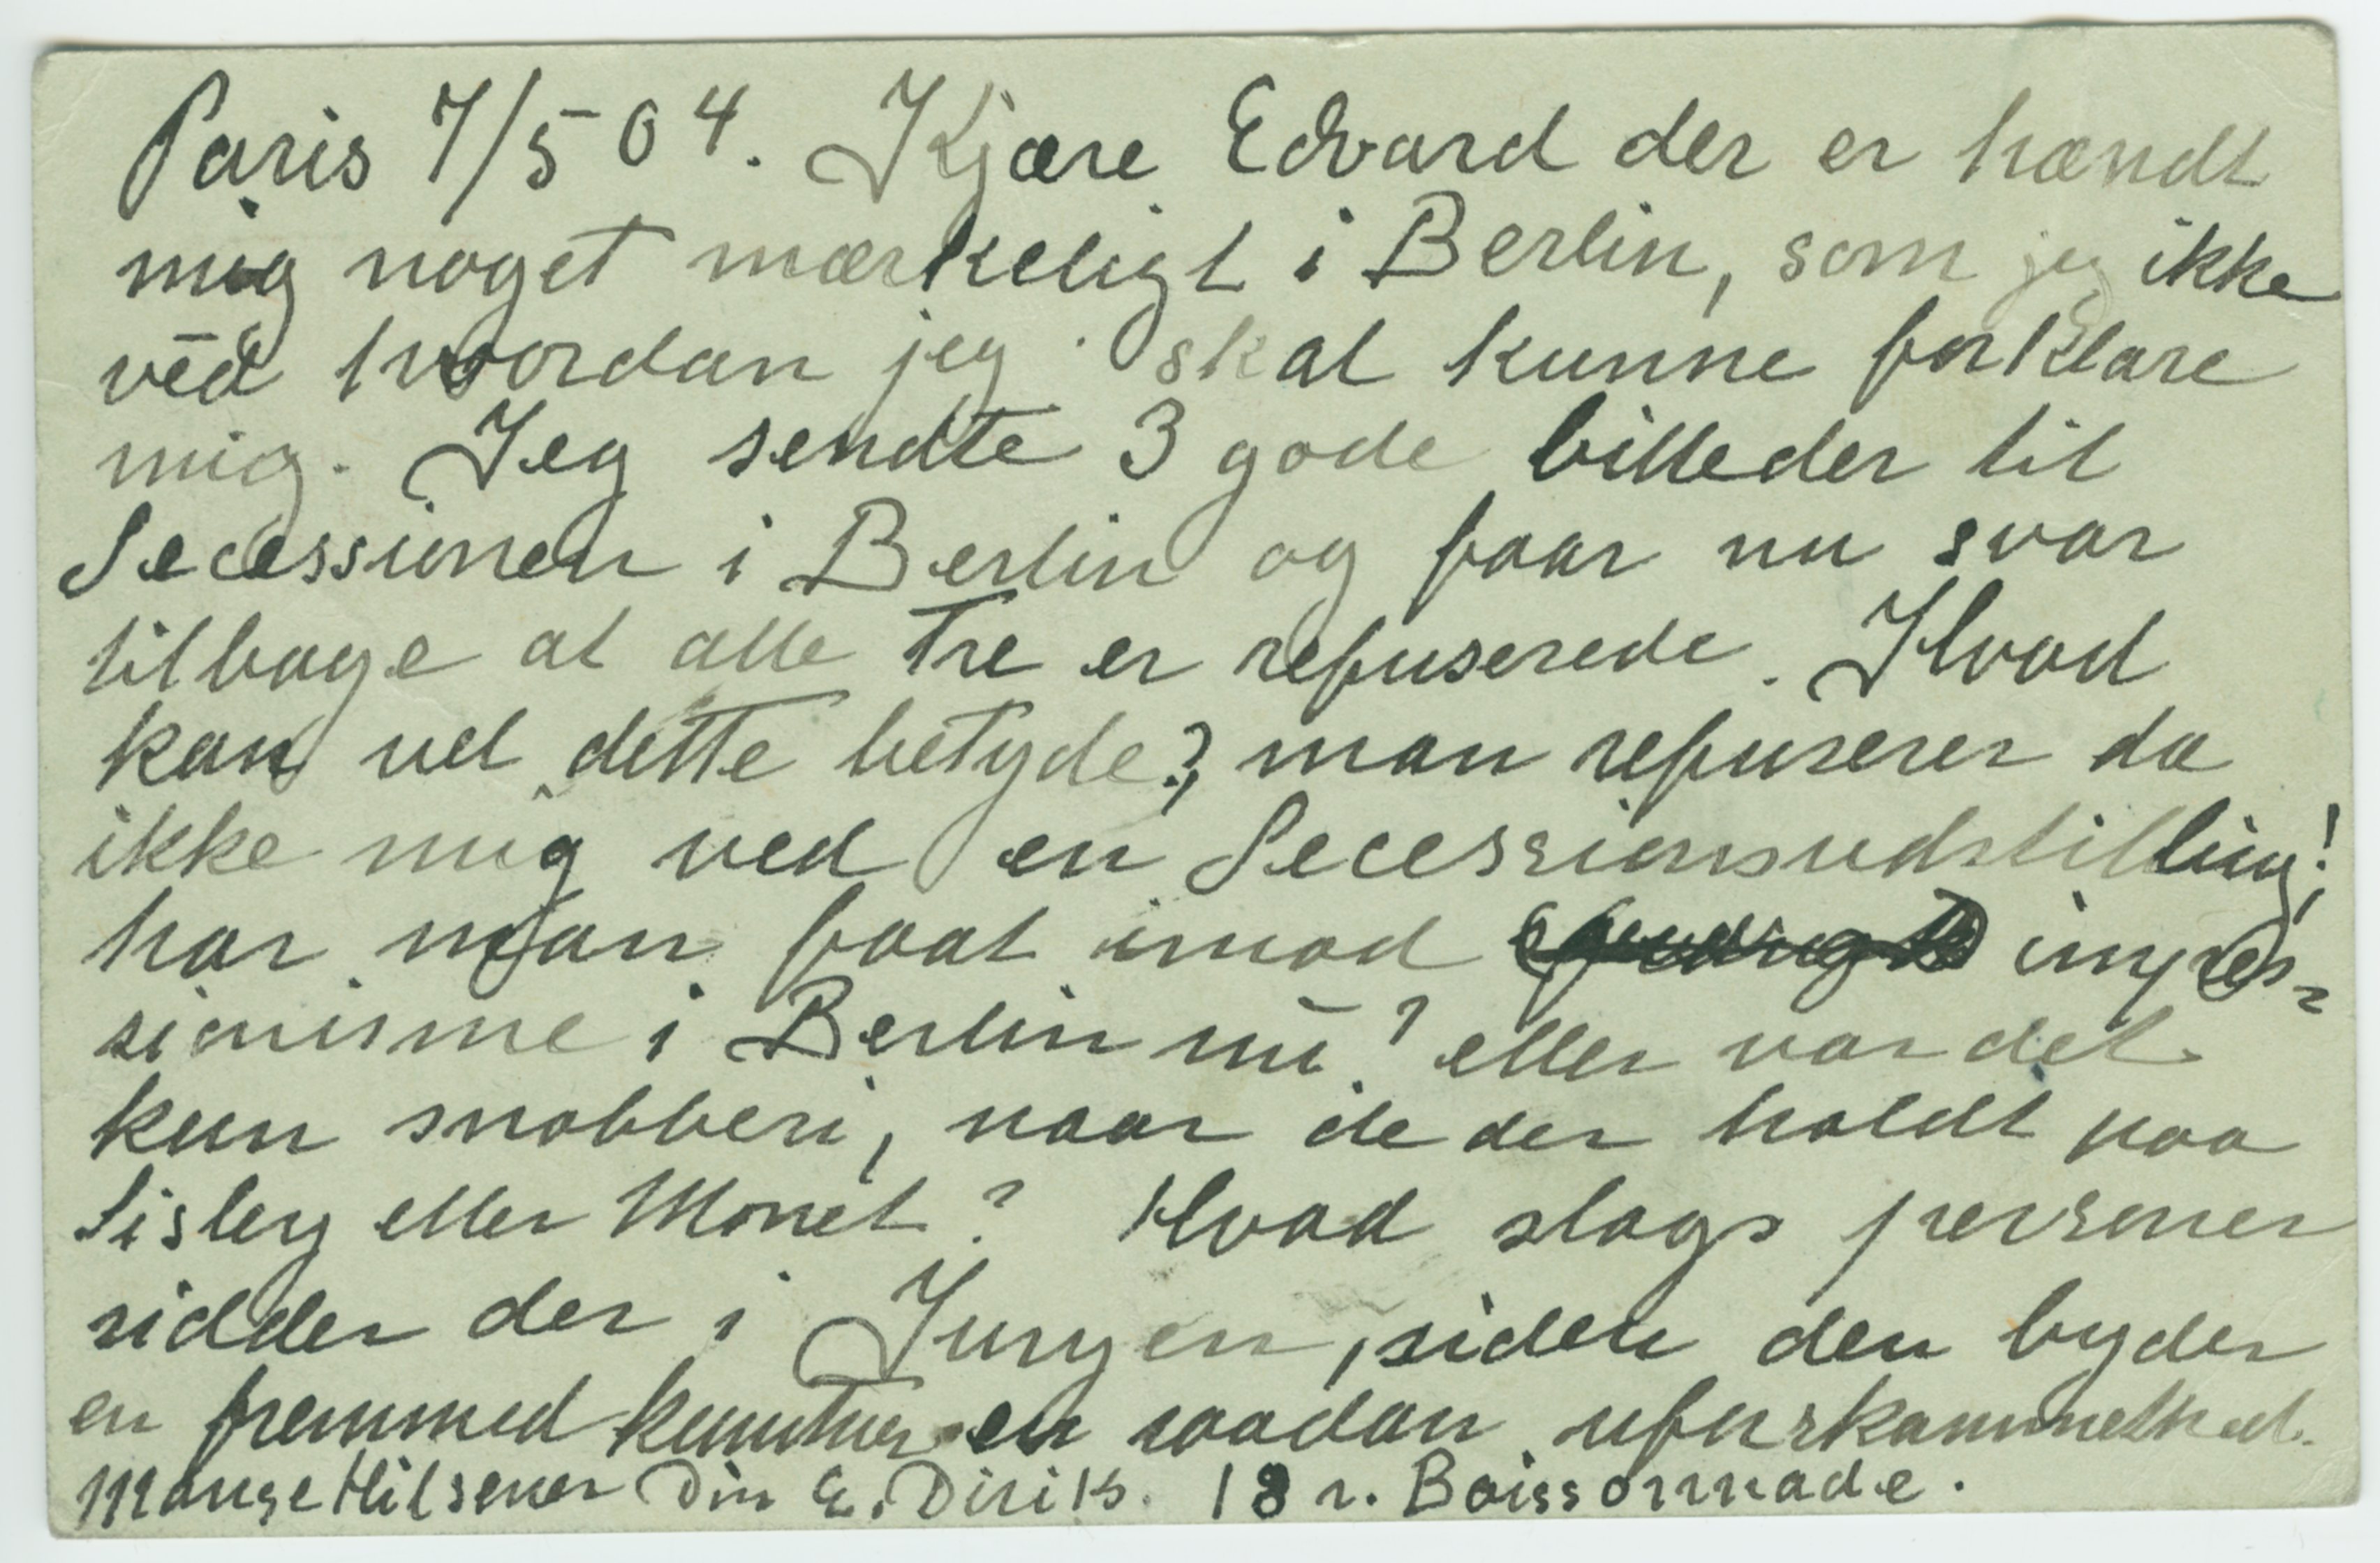 Paris 7/5 04. Kjære Edvard der er hændt
mig noget mærkeligt i Berlin, som jeg ikke
vēd hvordan jeg skal kunne forklare
mig. Jeg sendte 3 gode billeder til
Secessionen i Berlin og faar nu svar
tilbage at alle tre er refuserede. Hvad
kan vel dette betyde?, man refuserer da
ikke mig ved en Secessionsudstilling!,
har man faat imod impres=
sionisme i Berlin nu? eller var det
kun snobberi, naar de der holdt paa
Sisley eller Monet? Hvad slags personer
sidder der i Juryen, siden den byder
en fremmed kunstner en saadan uforskammethed.
Mange Hilsener Din E. Diriks. 18 r. Boissonnade.